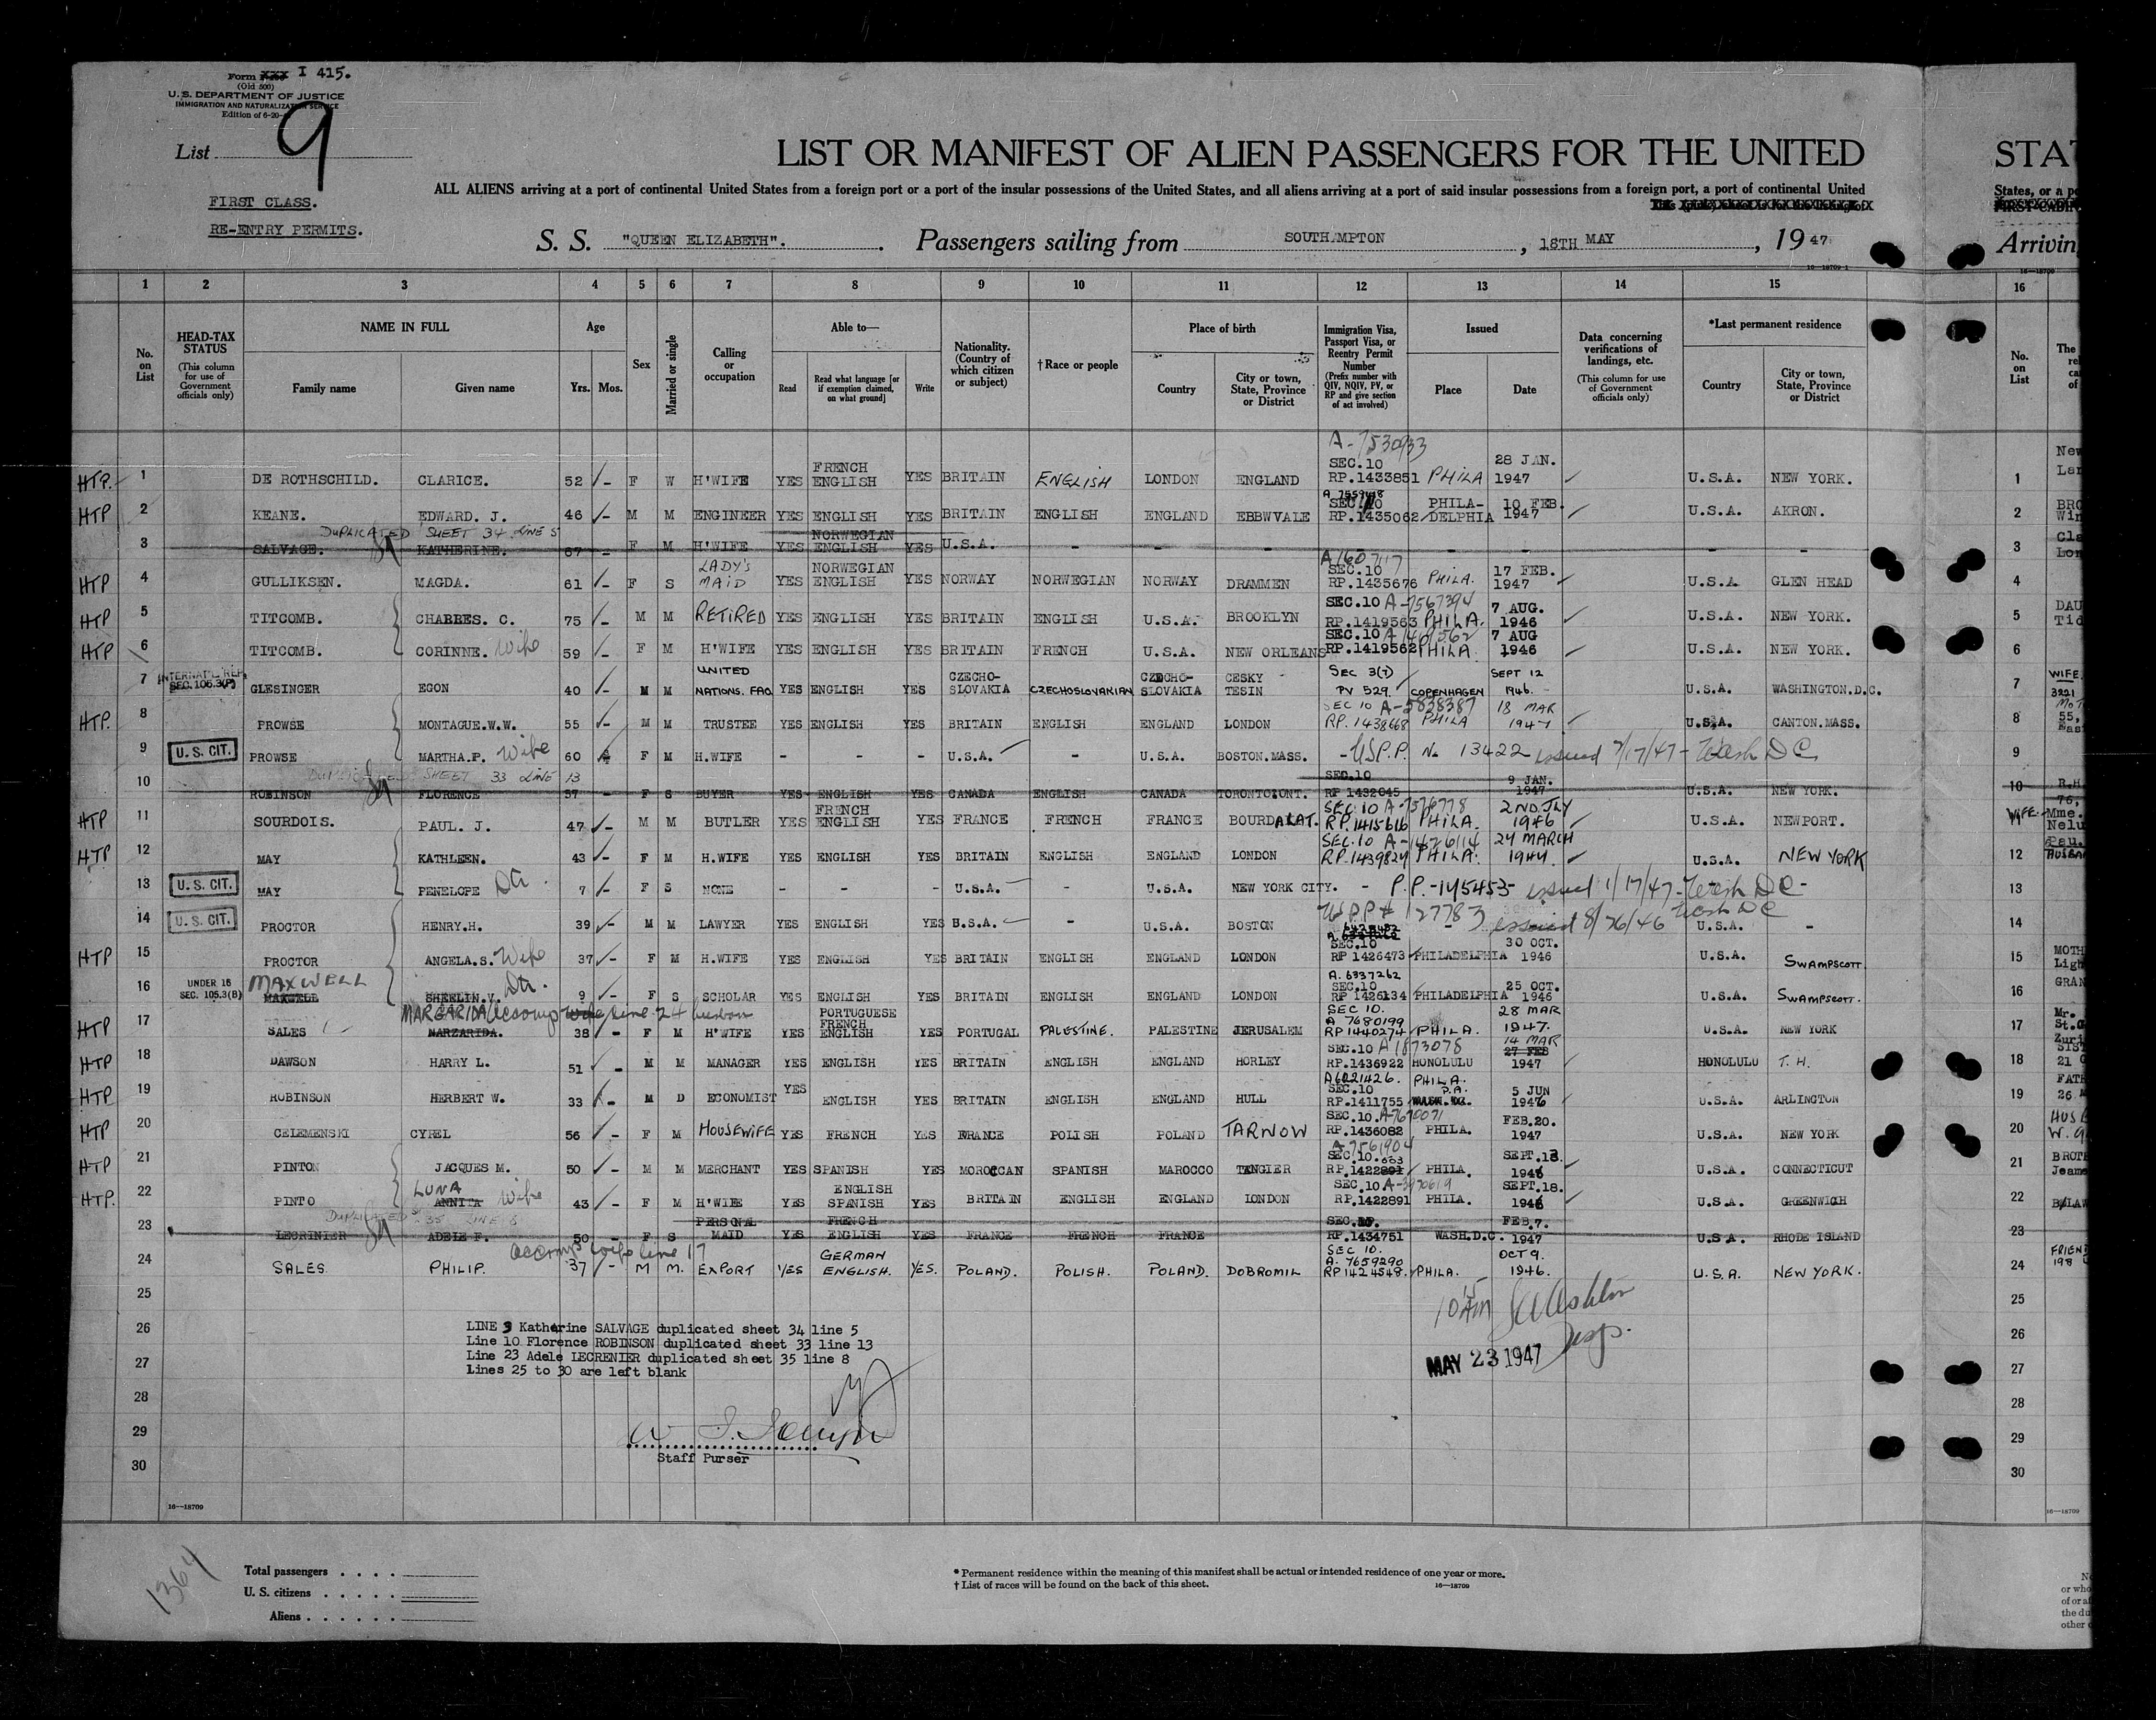 Form I 415.
(Old 500)
U. S. DEPARTMENT OF JUSTICE
IMMIGRATION AND NATURALIZATION SERVICE
Edition of 6-20-
List 9
FIRST CLASS.
RE-ENTRY PERMITS.
LIST OR MANIFEST OF ALIEN PASSENGERS FOR THE UNITED
STAT
ALL ALIENS arriving at a port of continental United States from a foreign port or a port of the insular possessions of the United States, and all aliens arriving at a port of said insular possessions from a foreign port, a port of continental United
States, or a po
S. S. "QUEEN ELIZABETH". Passengers sailing from SOUTHAMPTON, 18TH MAY, 1947
Arrivin
16—18709-1
1 2 3 4 5 6 7 8 9 10 11 12 13 14 15 16
No. on List
HEAD-TAX STATUS
(This column for use of Government officials only)
NAME IN FULL
Family name Given name
Age
Yrs. Mos.
Sex
Married or single
Calling or occupation
Able to—
Read Read what language [or if exemption claimed, on what ground] Write
Nationality. (Country of which citizen or subject)
†Race or people
Place of birth
Country City or town, State, Province or District
Immigration Visa, Passport Visa, or Reentry Permit Number
(Prefix number with QIV, NQIV, PV, or RP and give section of act involved)
Issued
Place Date
Data concerning verifications of landings, etc.
(This column for use of Government officials only)
*Last permanent residence
Country City or town, State, Province or District
No. on List
A-7530933
HTP. 1 DE ROTHSCHILD. CLARICE. 52 - F W H'WIFE YES FRENCH ENGLISH YES BRITAIN ENGLISH LONDON ENGLAND SEC.10 RP.1433851 PHILA 28 JAN. 1947 U.S.A. NEW YORK. 1
HTP 2 KEANE. EDWARD. J. 46 - M M ENGINEER YES ENGLISH YES BRITAIN ENGLISH ENGLAND EBBWVALE RP.1435062 PHILA-DELPHIA 10 FEB. 1947 U.S.A. AKRON. 2
DUPLICATED SHEET 34 LINE 5
3 SALVAGE. KATHERINE. 67 - F M H'WIFE YES NORWEGIAN ENGLISH YES U.S.A. - - - - - - - 3
HTP 4 GULLIKSEN. MAGDA. 61 - F S LADY'S MAID YES NORWEGIAN ENGLISH YES NORWAY NORWEGIAN NORWAY DRAMMEN A1607117 SEC.10 RP.1435676 PHILA. 17 FEB. 1947 U.S.A GLEN HEAD 4
HTP 5 TITCOMB. CHARLES. C. 75 - M M RETIRED YES ENGLISH YES BRITAIN ENGLISH U.S.A. BROOKLYN SEC.10 A-7567394 RP.1419563 PHILA. 7 AUG. 1946 U.S.A. NEW YORK. 5
HTP 6 TITCOMB. CORINNE. Wife 59 - F M H'WIFE YES ENGLISH YES BRITAIN FRENCH U.S.A. NEW ORLEANS SEC.10 RP.1419562 PHILA. 7 AUG 1946 U.S.A. NEW YORK. 6
INTERNAT'L REP. SEC. 105.3(P) 7 GLESINGER EGON 40 - M M UNITED NATIONS. FAO YES ENGLISH YES CZECHO-SLOVAKIA CZECHOSLOVAKIAN CZECHO-SLOVAKIA CESKY TESIN SEC 3(7) PV 529. COPENHAGEN SEPT 12 1946. U.S.A. WASHINGTON.D.C. 7
HTP. 8 PROWSE MONTAGUE.W.W. 55 - M M TRUSTEE YES ENGLISH YES BRITAIN ENGLISH ENGLAND LONDON SEC 10 A-5838387 RP. 1438668 PHILA 18 MAR 1947 U.S.A. CANTON.MASS. 8
U. S. CIT. 9 PROWSE MARTHA.P. Wife 60 F M H.WIFE - - - U.S.A. - U.S.A. BOSTON.MASS. - U.S.P.P. No 13422 issued /17/47 - Wash DC 9
DUPLICATED SHEET 33 LINE 13
10 ROBINSON FLORENCE 57 - F S BUYER YES ENGLISH YES CANADA ENGLISH CANADA TORONTO.ONT. SEC.10 RP 1432045 9 JAN. 1947 U.S.A. NEW YORK. 10
HTP 11 SOURDOIS. PAUL. J. 47 - M M BUTLER YES FRENCH ENGLISH YES FRANCE FRENCH FRANCE SEC.10 A-7576778 RP.1415616 PHILA. 2ND.JLY 1946 U.S.A. NEWPORT. 11
HTP 12 MAY KATHLEEN. 43 - F M H.WIFE YES ENGLISH YES BRITAIN ENGLISH ENGLAND LONDON SEC.10 RP.1439824 PHILA. 24 MARCH 1947. U.S.A. NEW YORK 12
U. S. CIT. 13 MAY PENELOPE Dtr. 7 - F S NONE - - - U.S.A. - U.S.A. NEW YORK CITY. - P.P.-145453- issued 1/17/47-Wash DC- 13
U. S. CIT. 14 PROCTOR HENRY.H. 39 - M M LAWYER YES ENGLISH YES U.S.A. - U.S.A. BOSTON US PP# 127783 issued 8/26/46 Wash DC U.S.A. - 14
HTP 15 PROCTOR ANGELA.S. Wife 37 - F M H.WIFE YES ENGLISH YES BRITAIN ENGLISH ENGLAND LONDON SEC.10 RP 1426473 PHILADELPHIA 30 OCT. 1946 U.S.A. SWAMPSCOTT 15
UNDER 16 SEC. 105.3(B) 16 MAXWELL SHEELIN.V. Dtr. 9 - F S SCHOLAR YES ENGLISH YES BRITAIN ENGLISH ENGLAND LONDON A. 6337262 SEC.10 RP 1426134 PHILADELPHIA 25 OCT. 1946 U.S.A. SWAMPSCOTT. 16
MARGARIDA Accomp line 24 husband
HTP 17 SALES MARZARIDA. 38 - F M H'WIFE YES PORTUGUESE FRENCH ENGLISH YES PORTUGAL PALESTINE. PALESTINE JERUSALEM SEC 10. A 7680199 RP 1440274 PHILA. 28 MAR 1947. U.S.A. NEW YORK 17
HTP 18 DAWSON HARRY L. 51 - M M MANAGER YES ENGLISH YES BRITAIN ENGLISH ENGLAND HORLEY SEC.10 A1873078 RP.1436922 HONOLULU 14 MAR 27 FEB 1947 HONOLULU T.H. 18
HTP 19 ROBINSON HERBERT W. 33 - M D ECONOMIST YES ENGLISH YES BRITAIN ENGLISH ENGLAND HULL A6021426. SEC.10 RP.1411755 PHILA. P.A. 5 JUN 1946 U.S.A. ARLINGTON 19
HTP 20 CELEMENSKI CYREL 56 - F M HOUSEWIFE YES FRENCH YES FRANCE POLISH POLAND TARNOW SEC.10. A-7670071 RP.1436082 PHILA. FEB.20. 1947 U.S.A. NEW YORK 20
HTP 21 PINTON JACQUES M. 50 - M M MERCHANT YES SPANISH YES MOROCCAN SPANISH MAROCCO TANGIER A-7561904 SEC.10. RP.1422891 PHILA. SEPT.13. 1946 U.S.A. CONNECTICUT 21
HTP. 22 PINTO LUNA ANNITA Wife 43 - F M H'WIFE YES ENGLISH SPANISH YES BRITAIN ENGLISH ENGLAND LONDON SEC.10 A-3970619 RP.1422891 PHILA. SEPT.18. 1946 U.S.A. GREENWICH 22
DUPLICATED S. 35 LINE 8
23 LECRINIER ADELE F. 50 - F S PERSONAL MAID YES FRENCH ENGLISH YES FRANCE FRENCH FRANCE SEC.10. RP.1434751 WASH.D.C. FEB.7. 1947 U.S.A. RHODE ISLAND 23
accomp wife line 17
24 SALES. PHILIP. 37 - M M. EXPORT YES GERMAN ENGLISH. YES. POLAND. POLISH. POLAND. DOBROMIL SEC 10. A. 7659290 RP 1424548. PHILA. OCT 9. 1946. U.S.A. NEW YORK. 24
25 25
26 LINE 3 Katherine SALVAGE duplicated sheet 34 line 5 26
Line 10 Florence ROBINSON duplicated sheet 33 line 13
27 Line 23 Adele LECRENIER duplicated sheet 35 line 8 27
Lines 25 to 30 are left blank
MAY 23 1947
28 28
29 29
Staff Purser
30 30
16—18709
1364
Total passengers . . . .
U. S. citizens . . . . .
Aliens . . . . . .
* Permanent residence within the meaning of this manifest shall be actual or intended residence of one year or more.
† List of races will be found on the back of this sheet.
16—18709